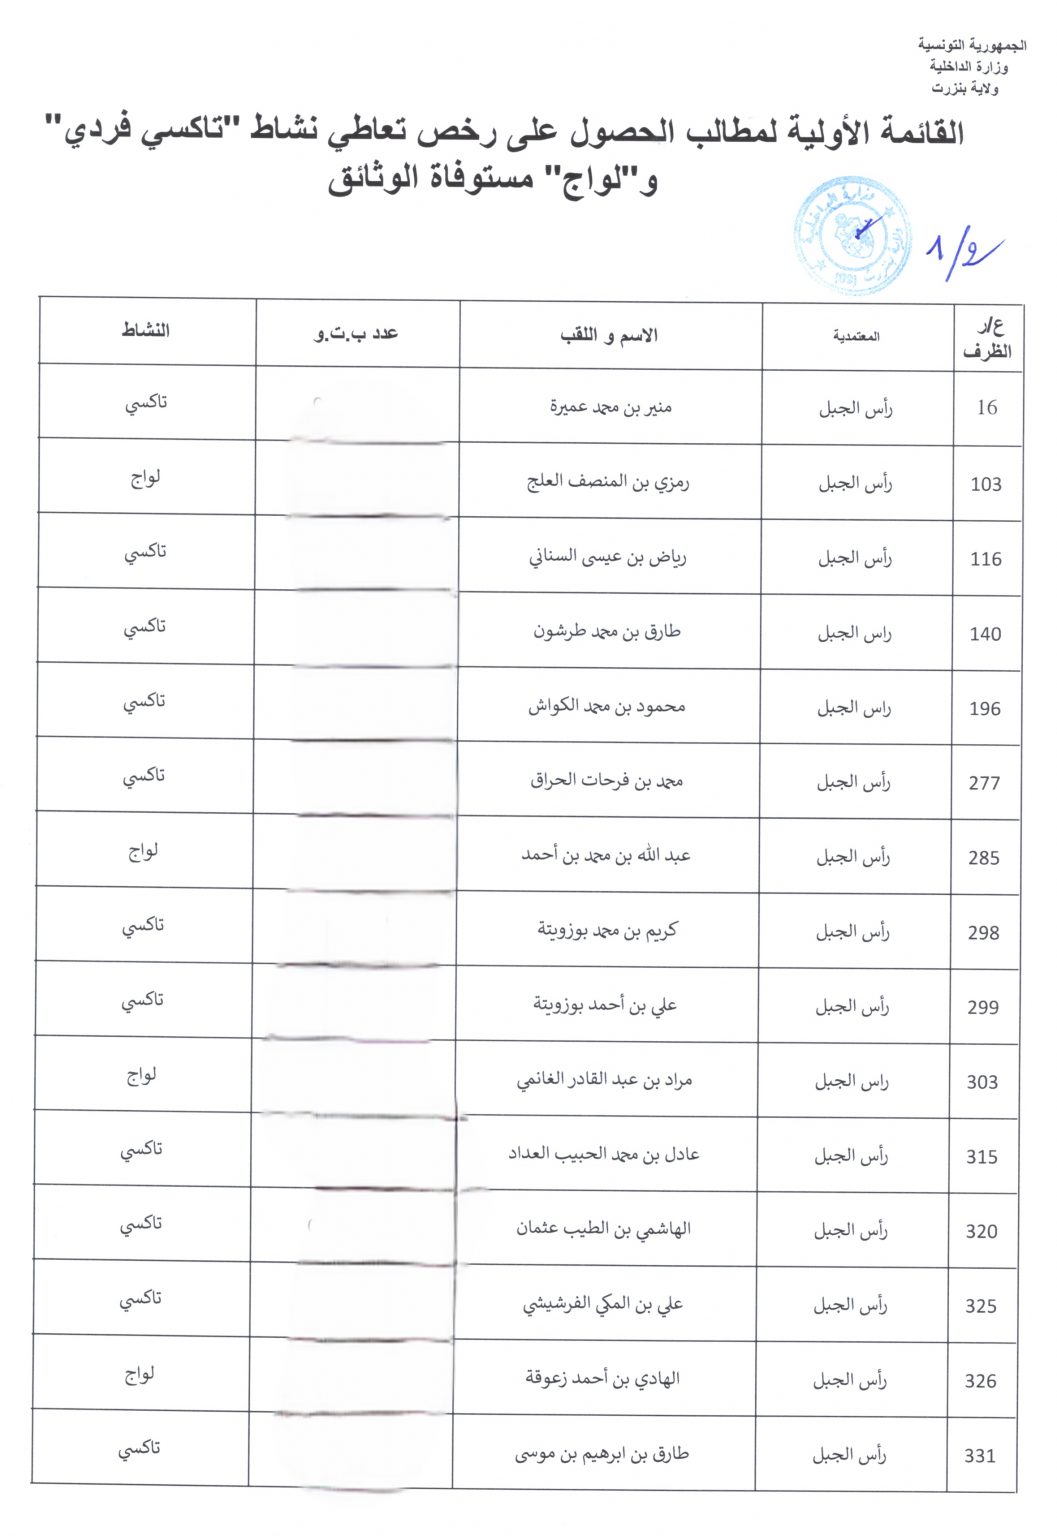 الجمهورية التونسية
وزارة الداخلية
ولاية بنزرت
القائمة الأولية لمطالب الحصول على رخص تعاطي نشاط "تاكسي فردي"
و"لواج" مستوفاة الوثائق
وزارة الداخلية
ولاية بنزرت (99)
1/2
ع/ر الظرف المعتمدية الاسم و اللقب عدد ب.ت.و النشاط
16 رأس الجبل منير بن محمد عميرة تاكسي
103 رأس الجبل رمزي بن المنصف العلج لواج
116 رأس الجبل رياض بن عيسى السناني تاكسي
140 راس الجبل طارق بن محمد طرشون تاكسي
196 راس الجبل محمود بن محمد الكواش تاكسي
277 رأس الجبل محمد بن فرحات الحراق تاكسي
285 رأس الجبل عبد الله بن محمد بن أحمد لواج
298 رأس الجبل كريم بن محمد بوزويتة تاكسي
299 رأس الجبل علي بن أحمد بوزويتة تاكسي
303 راس الجبل مراد بن عبد القادر الغانمي لواج
315 رأس الجبل عادل بن محمد الحبيب العداد تاكسي
320 رأس الجبل الهاشمي بن الطيب عثمان تاكسي
325 رأس الجبل علي بن المكي الفرشيشي تاكسي
326 رأس الجبل الهادي بن أحمد زعوقة لواج
331 رأس الجبل طارق بن ابرهيم بن موسى تاكسي